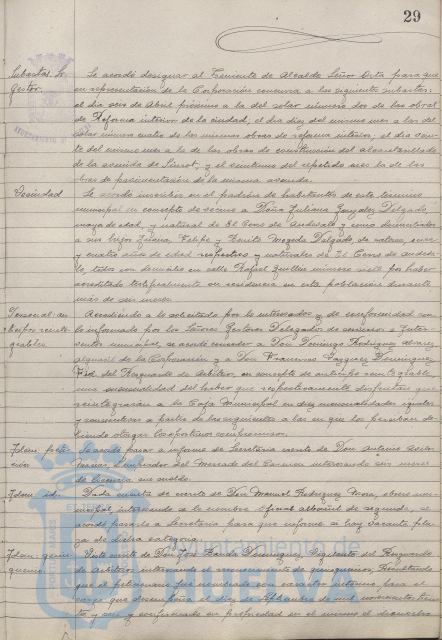 29
Subastas. 
Gestor.
Se acordó designar al Teniente de Alcalde Señor Ortá para que
en representación de la Corporación concurra a las siguientes subastas:
el día seis de Abril próximo a la del solar número dos de las obras
de Reforma interior de la ciudad, el día diez del mismo mes a las del
solar número cuatro de las mismas obras de reforma interior, el día
del mismo mes a la de las obras de construcción del alcantarillado
de la avenida de y el del repetido mes la de las
obras de pavimentación de la misma avenida.
Vecindad
Se acordó inscribir en el padrón de habitantes de este término
municipal en concepto de vecina a Doña Juliana González Delgado,
mayor de edad, y natural de El Cerro de Andévalo y como domiciliados
a sus hijos Felipe y Benito Delgado de catorce, 
y cuatro años de edad respectivos y naturales de El Cerro de Andéva-
lo, todos con domicilio en calle Rafael Guillén número siete por haber
acreditado testificalmente su residencia en esta población durante
más de seis meses.
Personal, an-
ticipos reinte-
grables
Accediendo a lo solicitado por los interesados y de conformidad con
lo informado por los Señores Gestores Delegados de e Inter-
ventor municipal, se acordó conceder a Don Domingo Rodríguez Alvarez
alguacil de la Corporación y a Don Francisco Vázquez Domínguez
Fiel del Resguardo de Arbitrios, en concepto de anticipo reintegrable
una mensualidad del haber que respectivamente disfrutan que
reintegrarán a la Caja Municipal en diez mensualidades iguales
y consecutivas a partir de la siguiente a la en que lo perciban de-
biendo otorgar los oportunos compromisos.
Idem
Se acordó pasar a informe de Secretaría escrito de Don Antonio
Macías, Limpiador del Mercado del Carmen interesando un mes
de licencia sin sueldo.
Idem id.
Dada cuenta de escrito de Don Manuel Rodríguez Mora, obrero mu-
nicipal, interesando se le nombre oficial albañil de segunda, se
acordó pasarlo a Secretaría para que informe si hay vacante pla-
za de dicha categoría.
Idem quin-
quenio
Visto escrito de Don José Domínguez, Vigilante del Resguardo
de Arbitrios interesando el reconocimiento de quinquenios, 
que el peticionario fue nombrado con carácter interino para el
cargo que desempeña el diez de Septiembre de mil novecientos trein-
ta y seis y confirmado en propiedad en el mismo el dieciocho